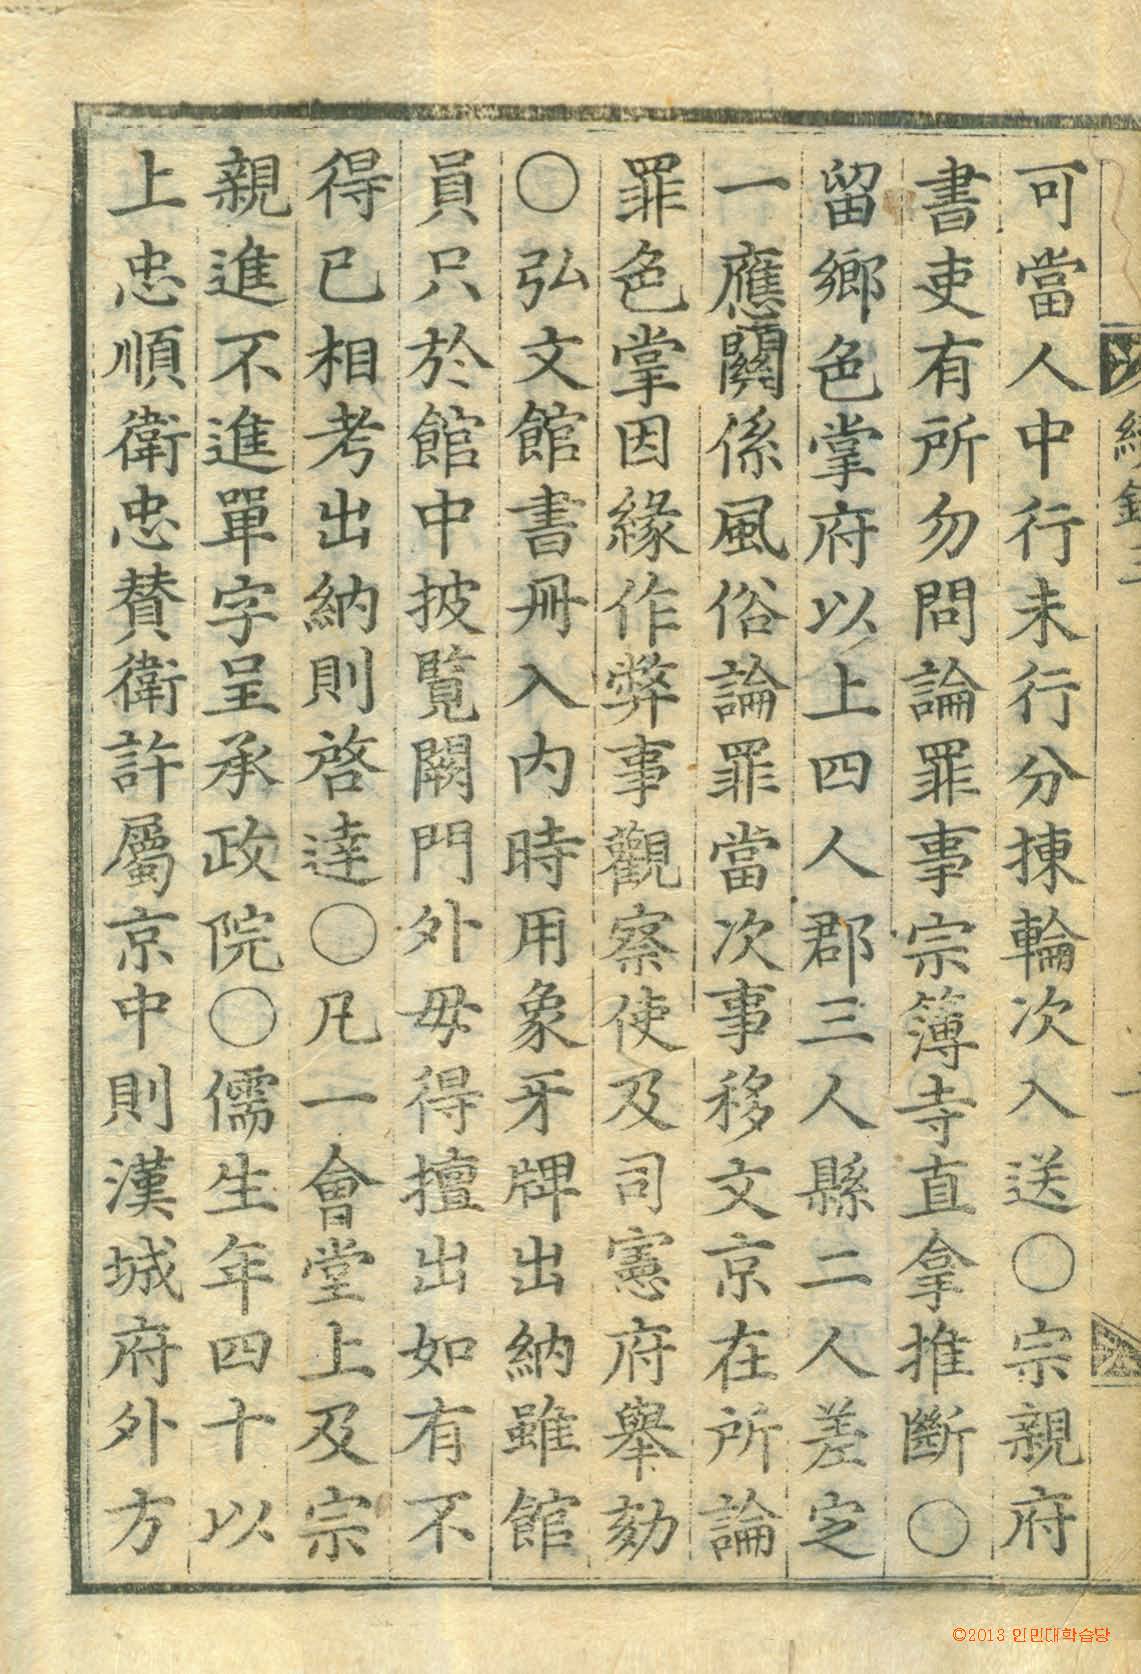 續錄三
可當人中行未行分揀輪次入送〇宗親府
書吏有所勿問論罪事宗簿寺直拿推斷〇
留鄕色掌府以上四人郡三人縣二人差定
一應關係風俗論罪當次事移文京在所論
罪色掌因緣作弊事觀察使及司憲府擧劾
〇弘文館書冊入內時用象牙牌出納雖館
員只於館中披覽闕門外毋得擅出如有不
得已相考出納則啓達〇凡一會堂上及宗
親進不進單字呈承政院〇儒生年四十以
上忠順衛忠贊衛許屬京中則漢城府外方
©2013 인민대학습당